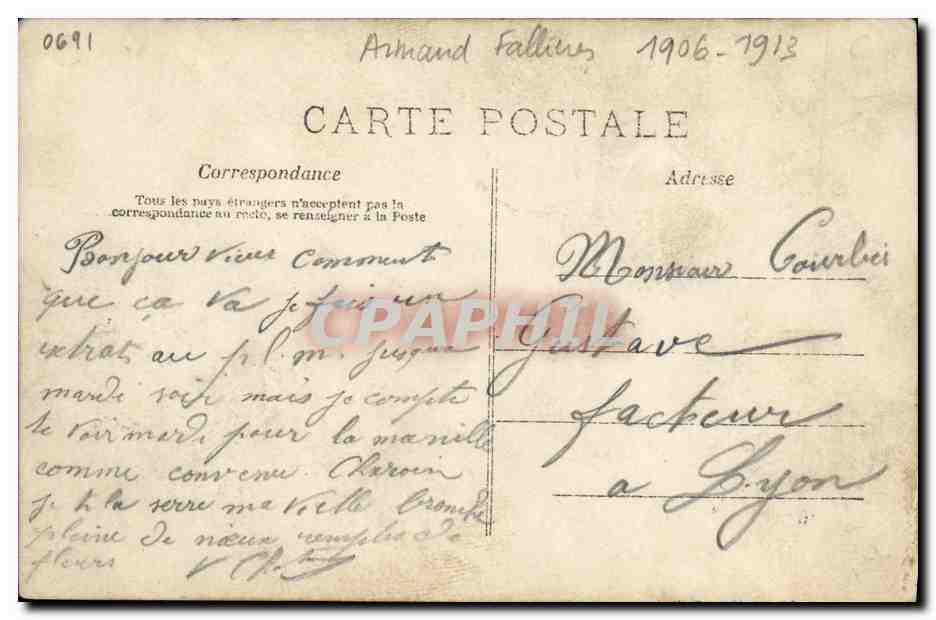 0691
Armand Fallières 1906-1913
CARTE POSTALE
Correspondance
Tous les pays étrangers n'acceptent pas la
correspondance au recto, se renseigner à la Poste
Bonjour vieux comment
que ça va je fais un
extrat au p.l.m. jusque
mardi soir mais je compte
te voir mardi pour la manille
comme convenu
je te la serre ma vielle branche
pleine de nœux remplis de
fleurs
Adresse
Monsieur
Gustave
facteur
a Lyon
CPAPHIL